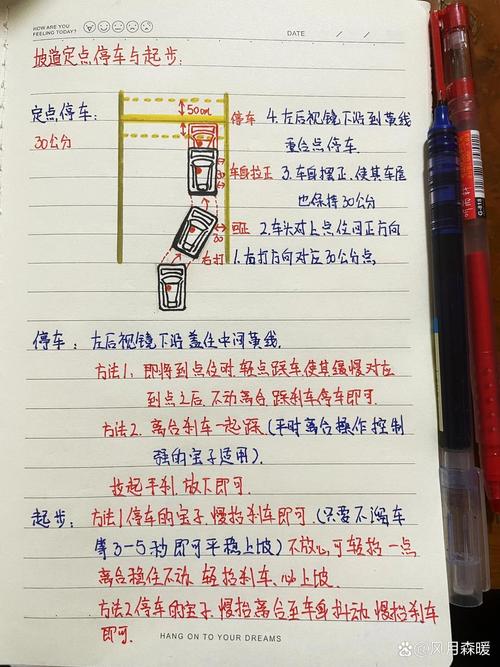 HOW ARE YOU FEELING?
DATE / /
坡道定点停车与起步:
50cm
定点停车:
30公分
停车 4.左后视镜下沿到黄线
重合点停车.
车身拉正 3.车身摆正,使其车尾
也保持30公分
30
回正 2.车头对上点位回正方向
30
右打 1.右打方向对左30公分点,
停车: 左后视镜下沿盖住中间黄线.
方法1. 即将到点位时,轻点踩车使其缓慢对应
到点之后,不动离合,踩刹车停车即可.
方法2. 离合刹车一起踩(平时离合操作控制
强的宝子适用).
拉起手刹,放下即可.
起步: 方法1停车的宝子,慢抬刹车即可.(只要不溜车
等3-5秒即可平稳上坡)不放心,可轻抬一点
离合稳住不动,轻抬刹车、心上坡.
方法2停车的宝子,慢抬离合至车身抖动,慢抬刹车
即可.
HANG ON TO YOUR DREAMS
G-818
Bai百度 @风月森暖